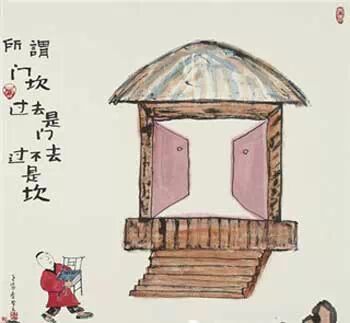 所謂
门坎
过去是门
过不去是坎